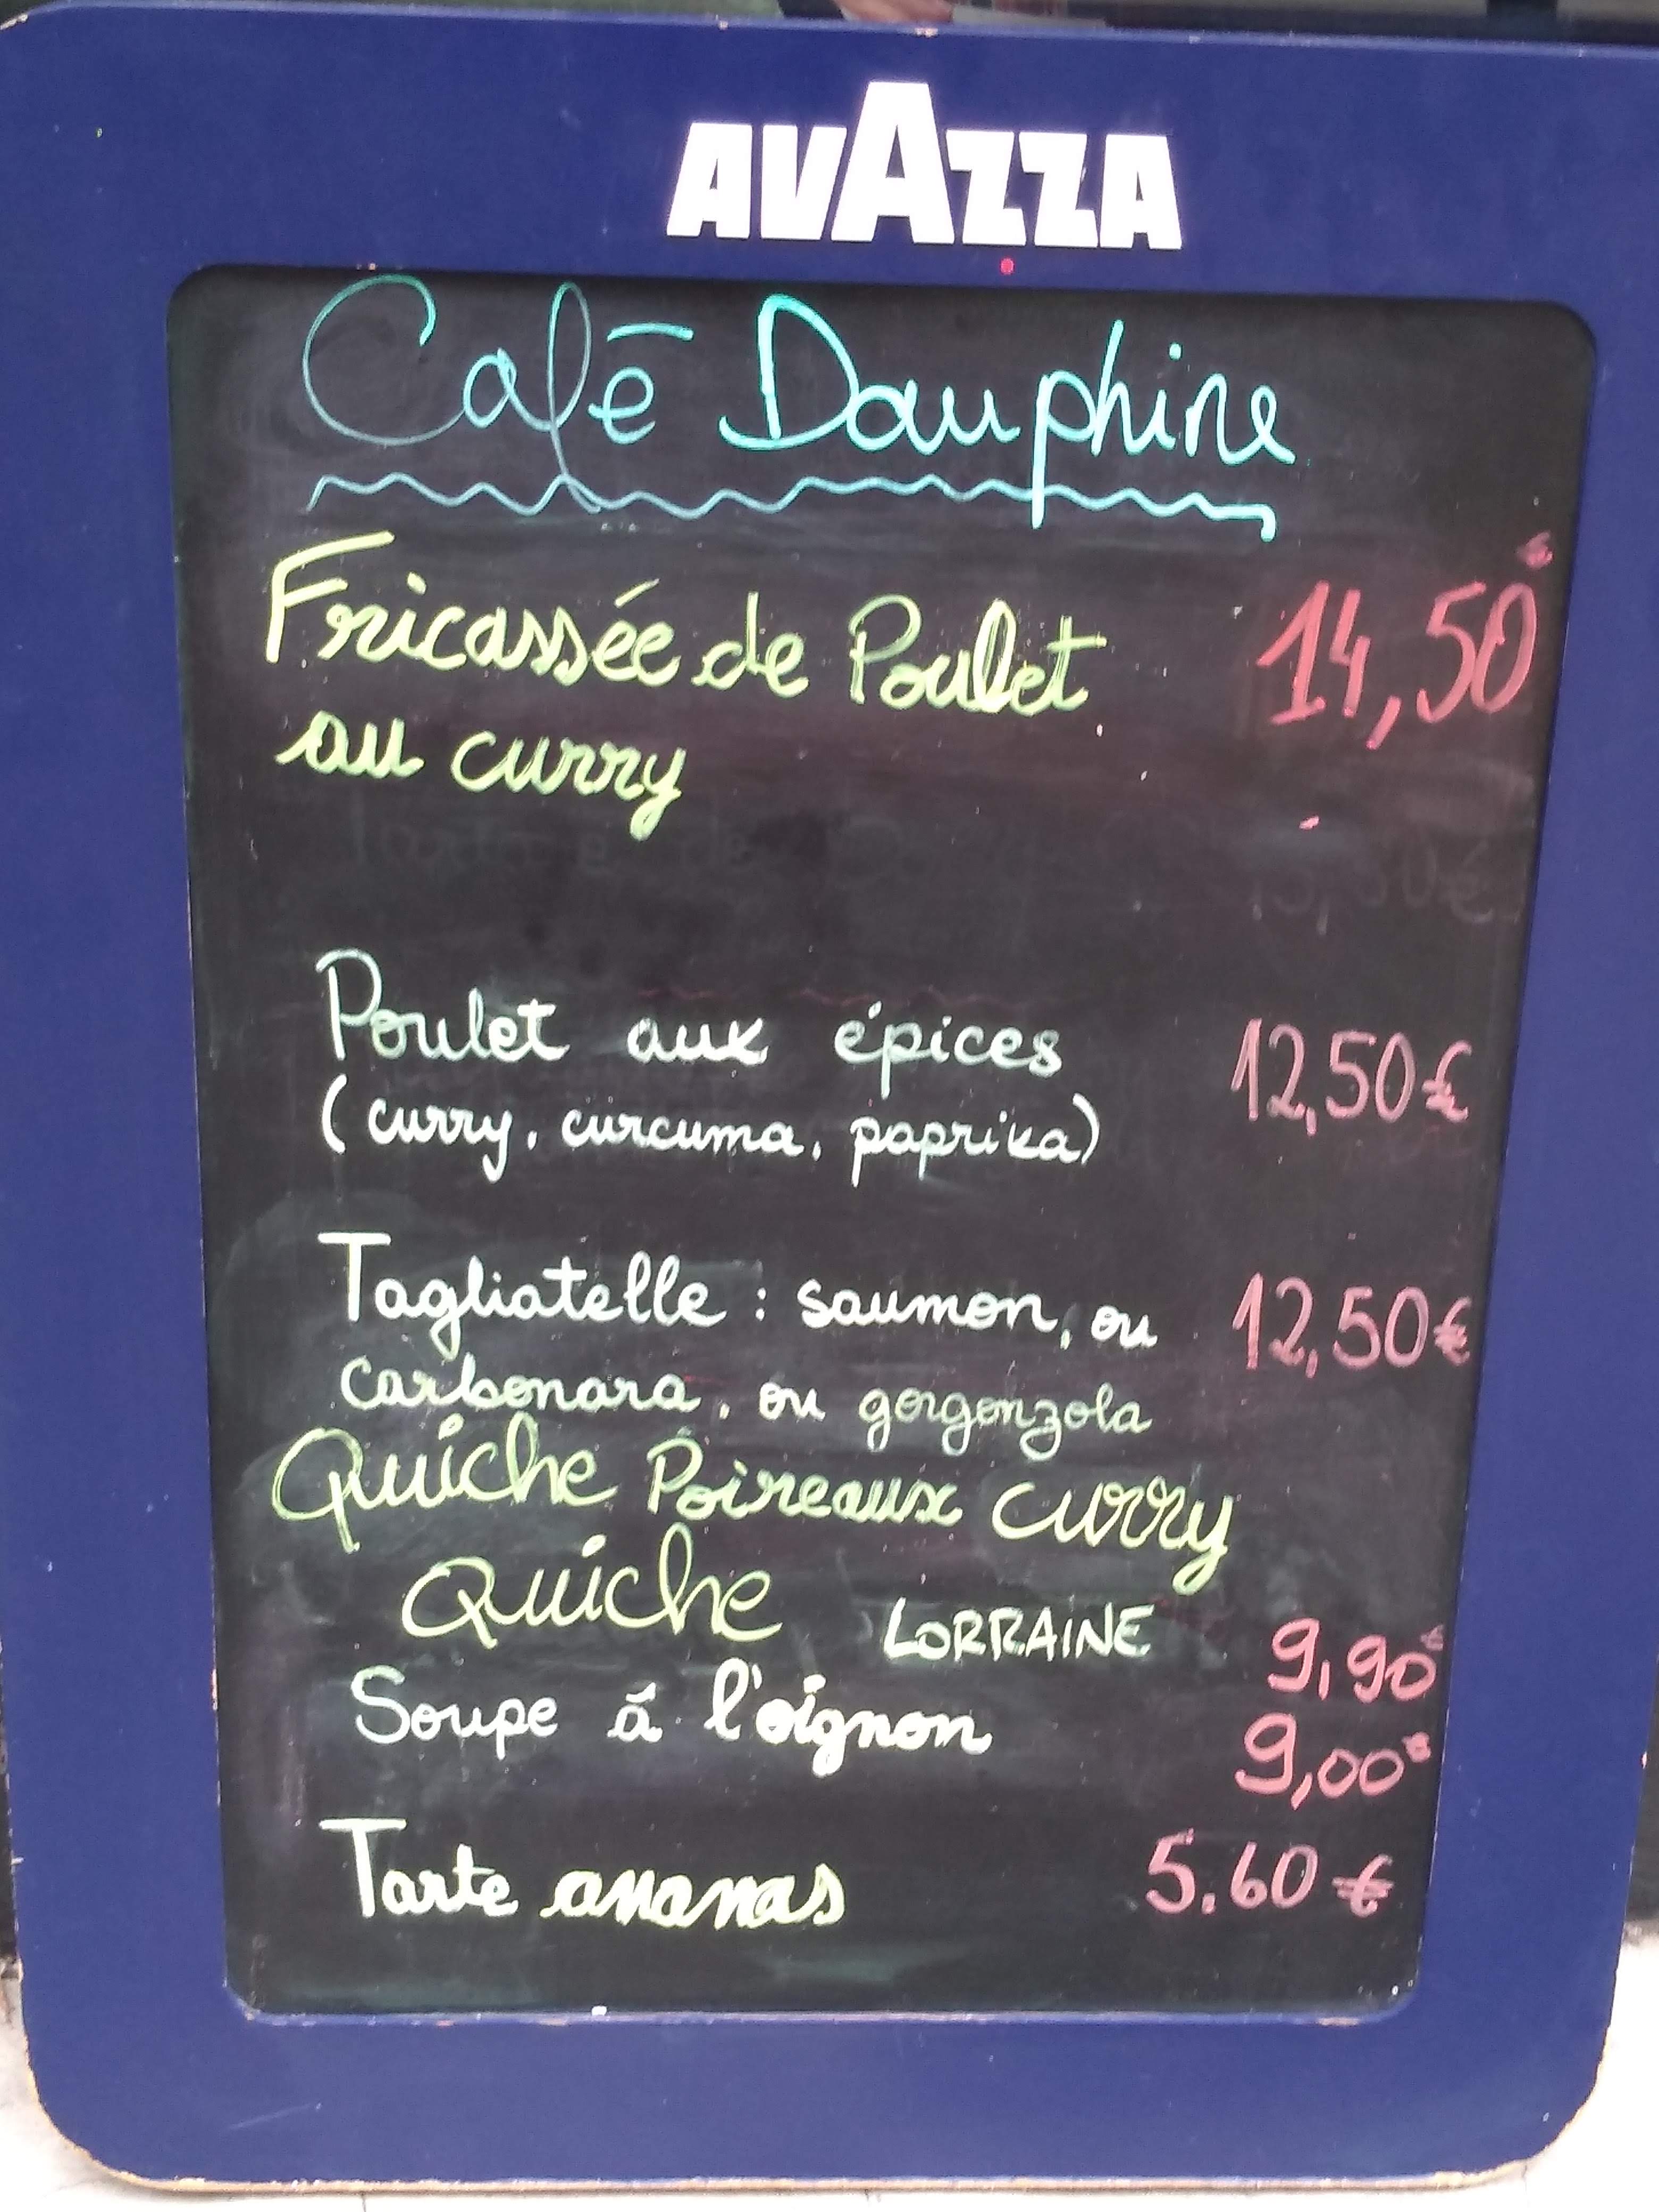 AVAZZA
Café Dauphine
Fricassée de Poulet 14,50€
au curry
Poulet aux épices 12,50€
(curry, curcuma, paprika)
Tagliatelle : saumon, ou 12,50€
carbonara, ou gorgonzola
Quiche Poireaux curry
Quiche LORRAINE 9,90€
Soupe à l'oignon 9,00€
Tarte ananas 5.60€